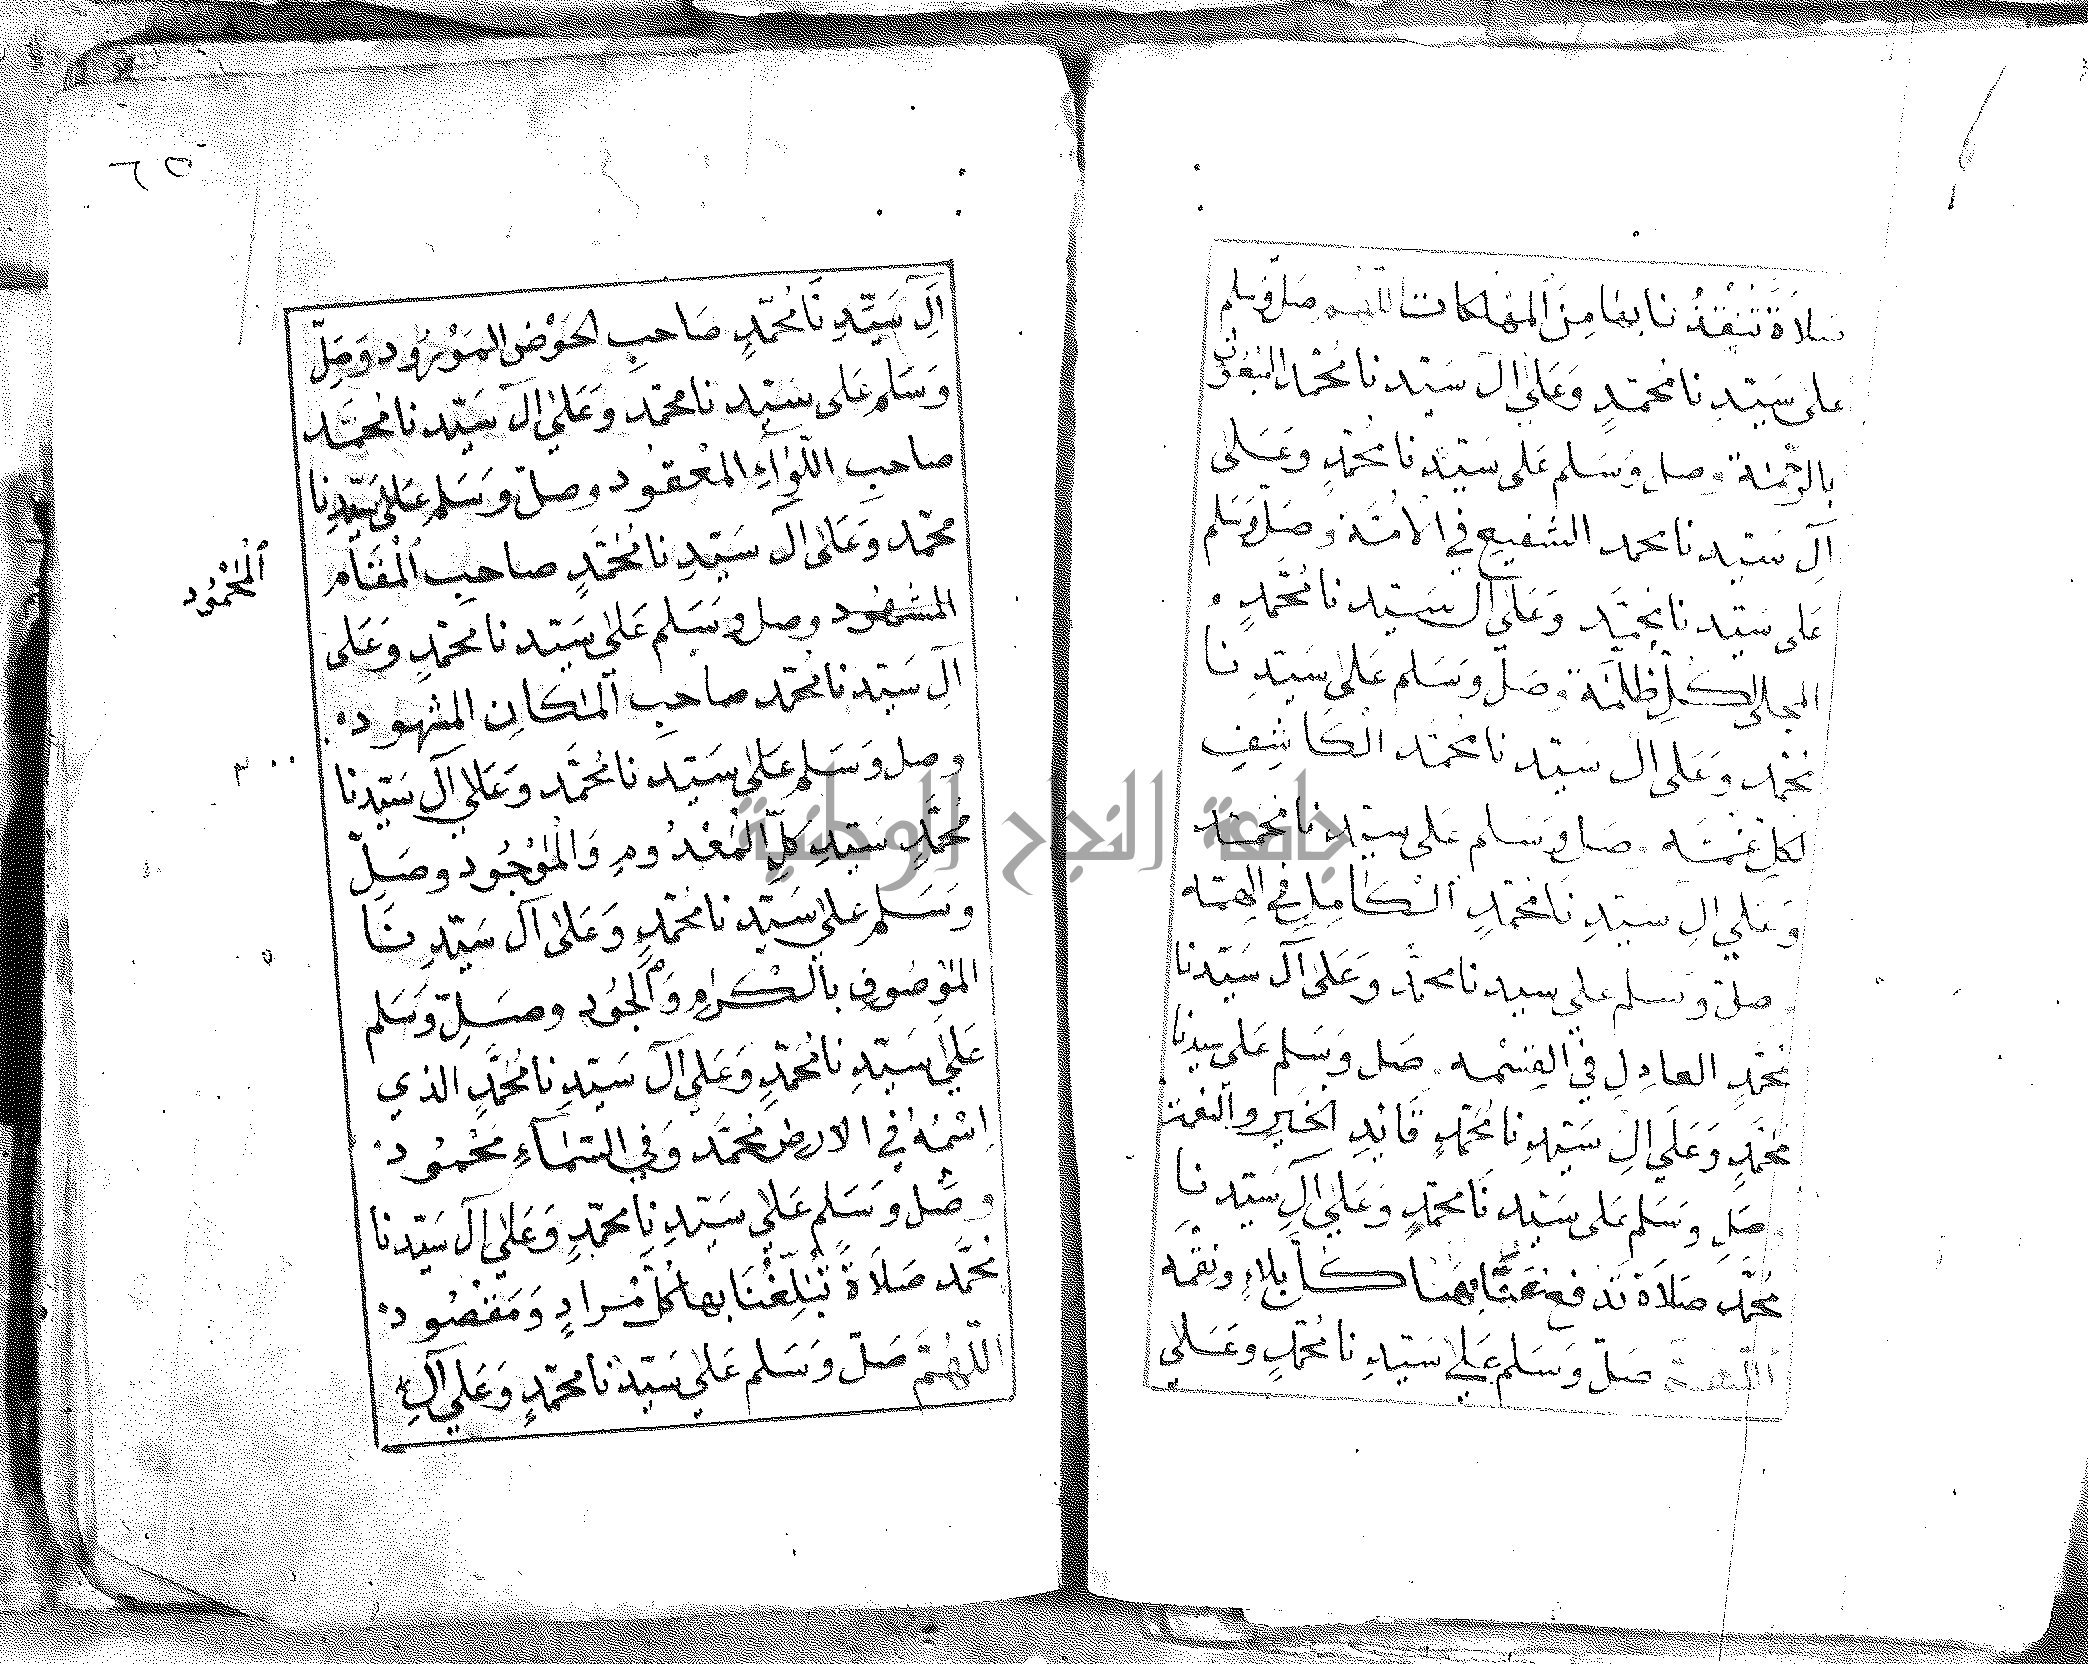 صلاة تنقذنا بها من المهلكات اللهم صل وسلم
على سيدنا محمد وعلى آل سيدنا محمد المبعوث
بالرحمة وصل وسلم على سيدنا محمد وعلى
آل سيدنا محمد الشفيع في الأمة وصل وسلم
على سيدنا محمد وعلى آل سيدنا محمد
المجلي لكل ظلمة وصل وسلم على سيدنا
محمد وعلى آل سيدنا محمد الكاشف
لكل غمه وصل وسلم على سيدنا محمد
وعلى آل سيدنا محمد الكامل في الهمه
وصل وسلم على سيدنا محمد وعلى آل سيدنا
محمد العادل في القسمه وصل وسلم على سيدنا
محمد وعلى آل سيدنا محمد قائد الخير والنعمة
وصل وسلم على سيدنا محمد وعلى آل سيدنا
محمد صلاة تدفع عنا بها كل بلاء ونقمه
اللهم صل وسلم على سيدنا محمد وعلى
٦٥
آل سيدنا محمد صاحب الحوض المورود وصل
وسلم على سيدنا محمد وعلى آل سيدنا محمد
صاحب اللواء المعقود وصل وسلم على سيدنا
محمد وعلى آل سيدنا محمد صاحب المقام
المحمود
المشهود وصل وسلم على سيدنا محمد وعلى
آل سيدنا محمد صاحب المكان المشهود
وصل وسلم على سيدنا محمد وعلى آل سيدنا
محمد سيد كل المعدوم والموجود وصل
وسلم على سيدنا محمد وعلى آل سيدنا
الموصوف بالكرم والجود وصل وسلم
على سيدنا محمد وعلى آل سيدنا محمد الذي
اسمه في الارض محمد وفي السماء محمود
وصل وسلم على سيدنا محمد وعلى آل سيدنا
محمد صلاة تبلغنا بها كل مراد ومقصود
اللهم صل وسلم على سيدنا محمد وعلى آل
جامعة النجاح الوطنية